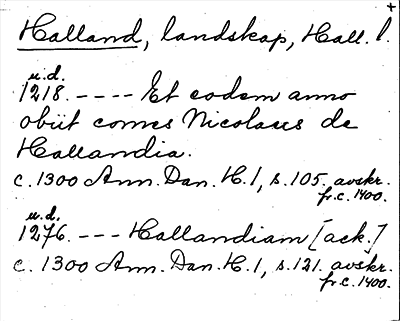 +
Halland, landskap, Hall. l.
u.d.
1218. ---- Et eodem anno
obiit comes Nicolaus de
Hallandia.
c. 1300 Ann. Dan. H. 1, s. 105. avskr.
fr. c. 1400.
u.d.
1276. --- Hallandiam [ack.]
c. 1300 Ann. Dan. H. 1, s. 121. avskr.
fr. c. 1400.